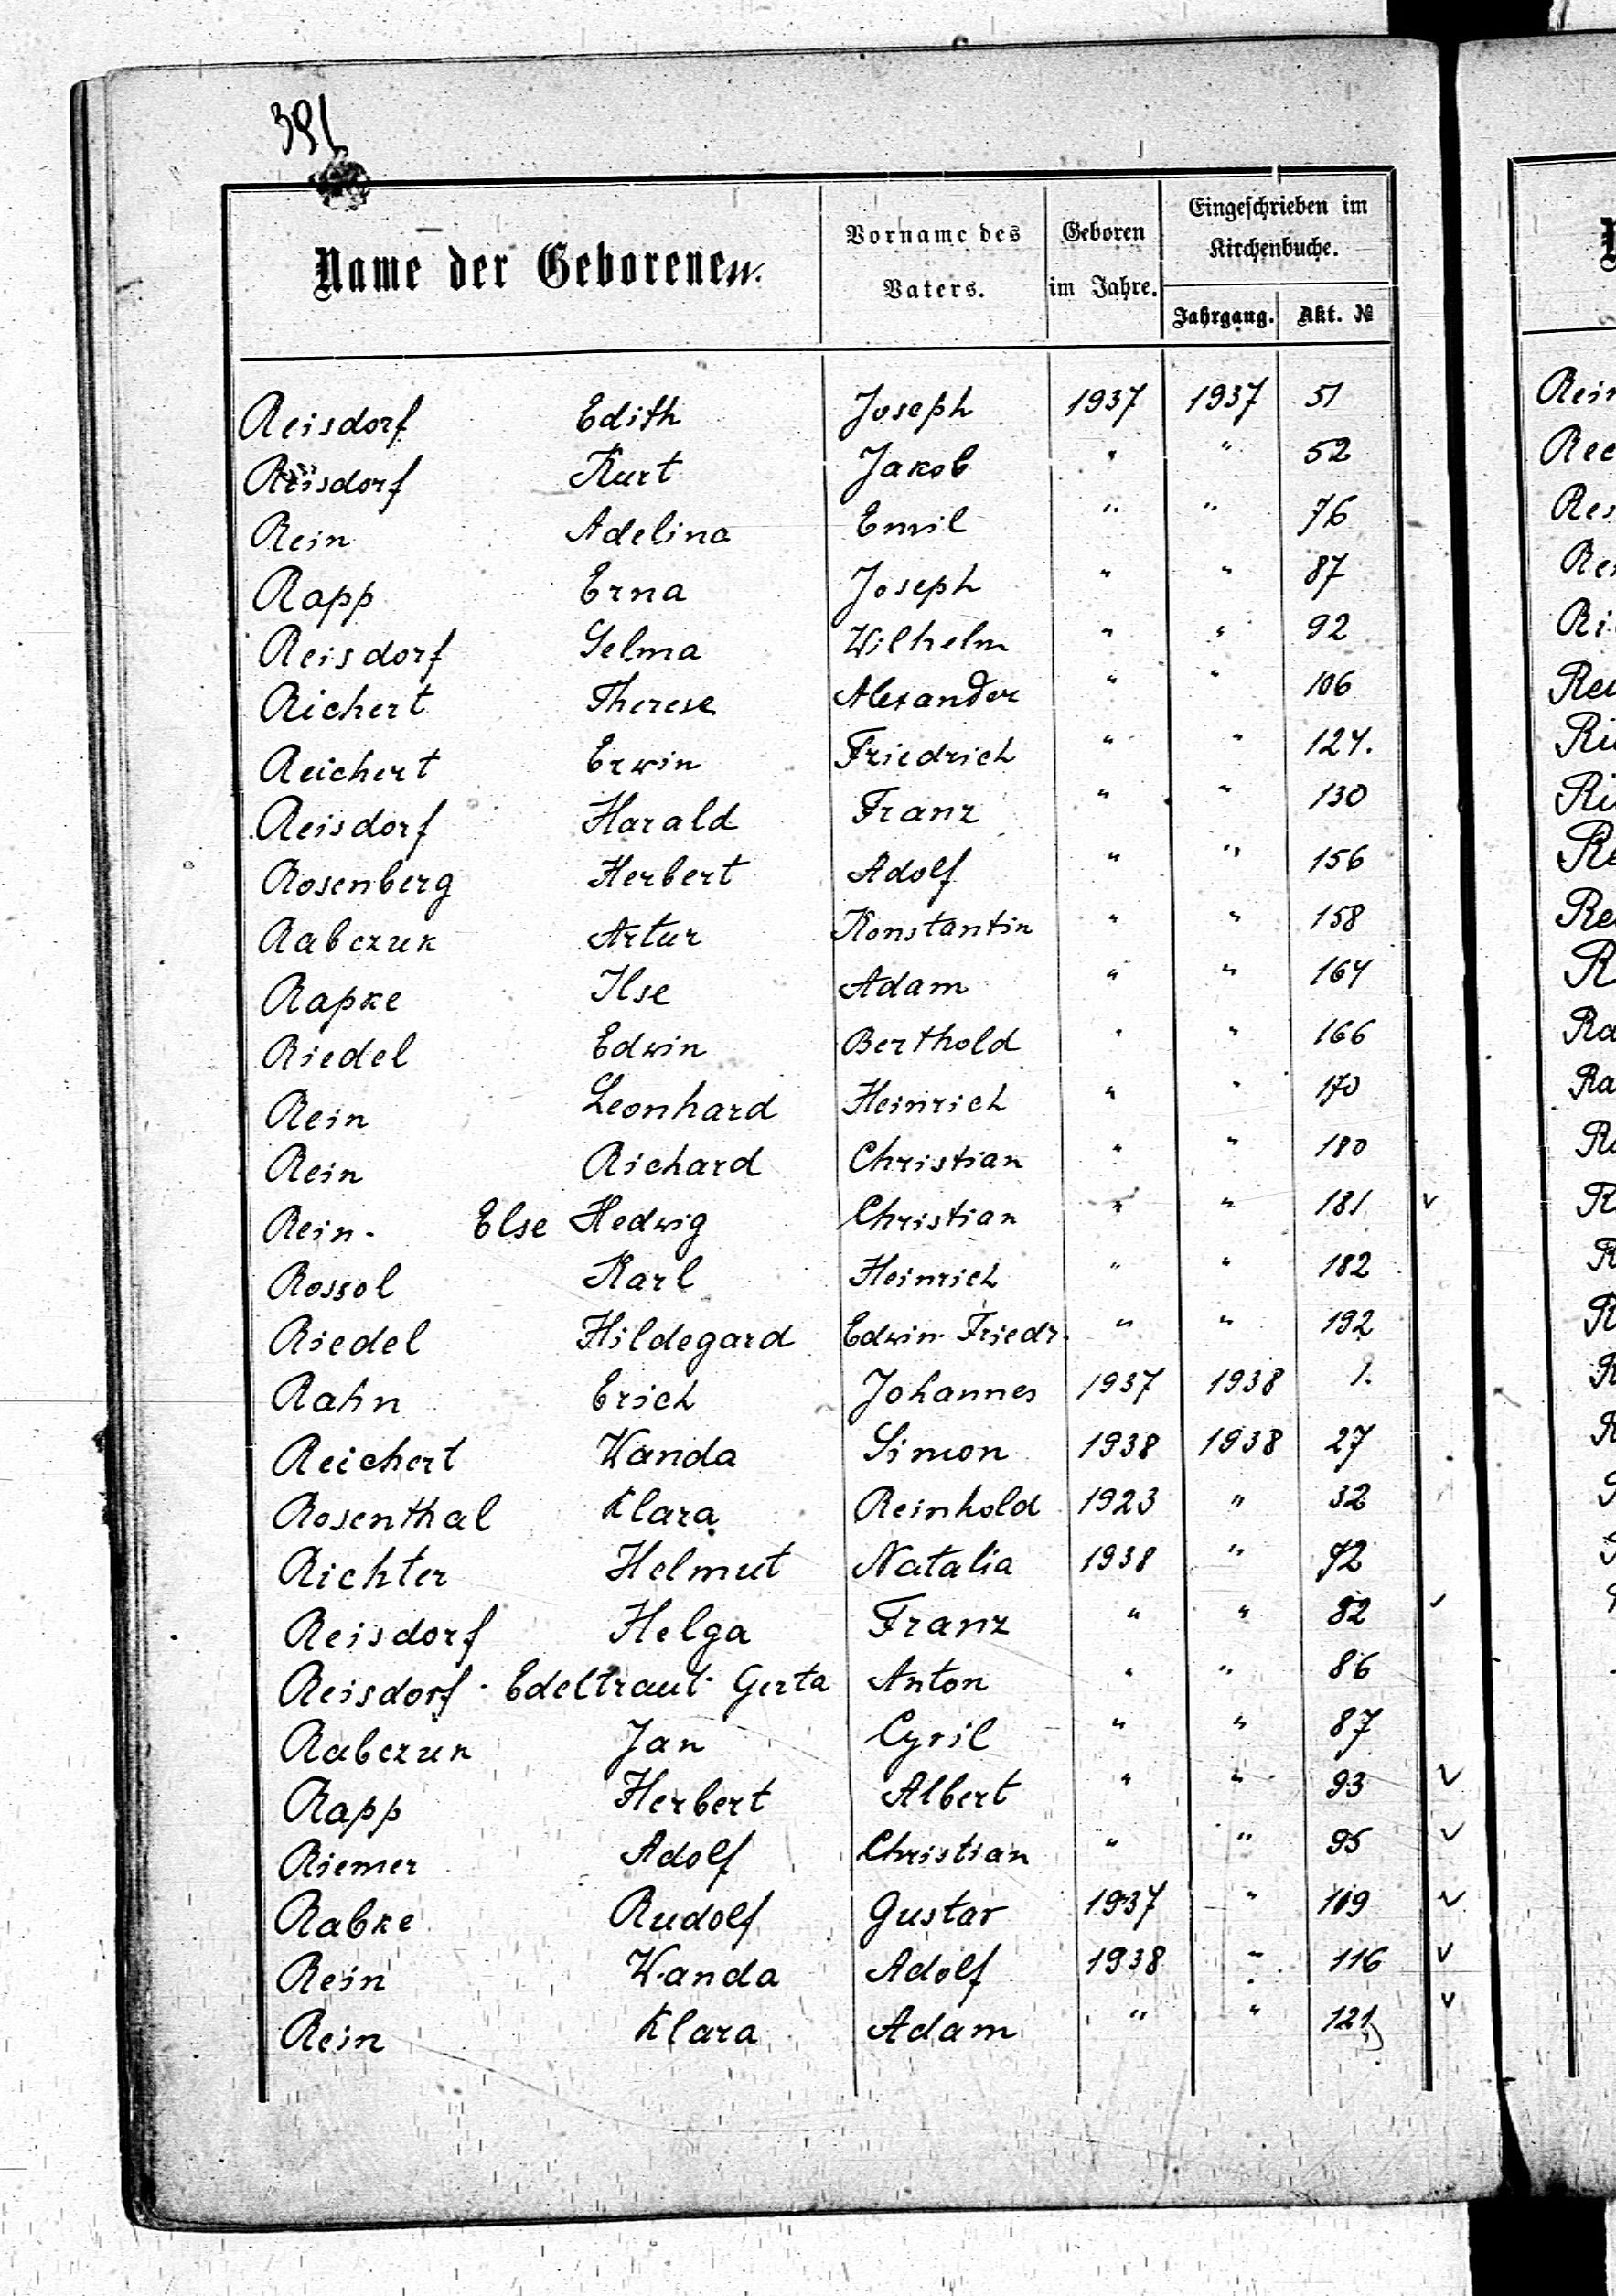 391
Name der Geborenen.
Vorname des
Vaters.
Geboren
im Jahre.
Eingeschrieben im
Kirchenbuche.
Jahrgang. Akt. №
Reisdorf Edith Joseph 1937 1937 51
Reisdorf Kurt Jakob " " 52
Rein Adelina Emil " " 76
Rapp Erna Joseph " " 87
Reisdorf Selma Wilhelm " " 92
Richert Therese Alexander " " 106
Reichert Erwin Friedrich " " 124.
Reisdorf Harald Franz " " 130
Rosenberg Herbert Adolf " " 156
Rabczuk Artur Konstantin " " 158
Rapke Ilse Adam " " 164
Riedel Edwin Berthold " " 166
Rein Leonhard Heinrich " " 170
Rein Richard Christian " " 180
Rein. Else Hedwig Christian " " 181 v
Rossol Karl Heinrich " " 182
Riedel Hildegard Edwin Friedr. " " 192
Rahn Erich Johannes 1937 1938 1.
Reichert Wanda Simon 1938 1938 27
Rosenthal Klara Reinhold 1923 " 32
Richter Helmut Natalia 1938 " 72
Reisdorf Helga Franz " " 82 v
Reisdorf Edeltraut Gerta Anton " " 86
Rabczuk Jan Cyril " " 87
Rapp Herbert Albert " " 93 v
Riemer Adolf Christian " " 95 v
Rabke Rudolf Gustav 1937 " 109 v
Rein Wanda Adolf 1938 " 116 v
Rein Klara Adam " " 121 v